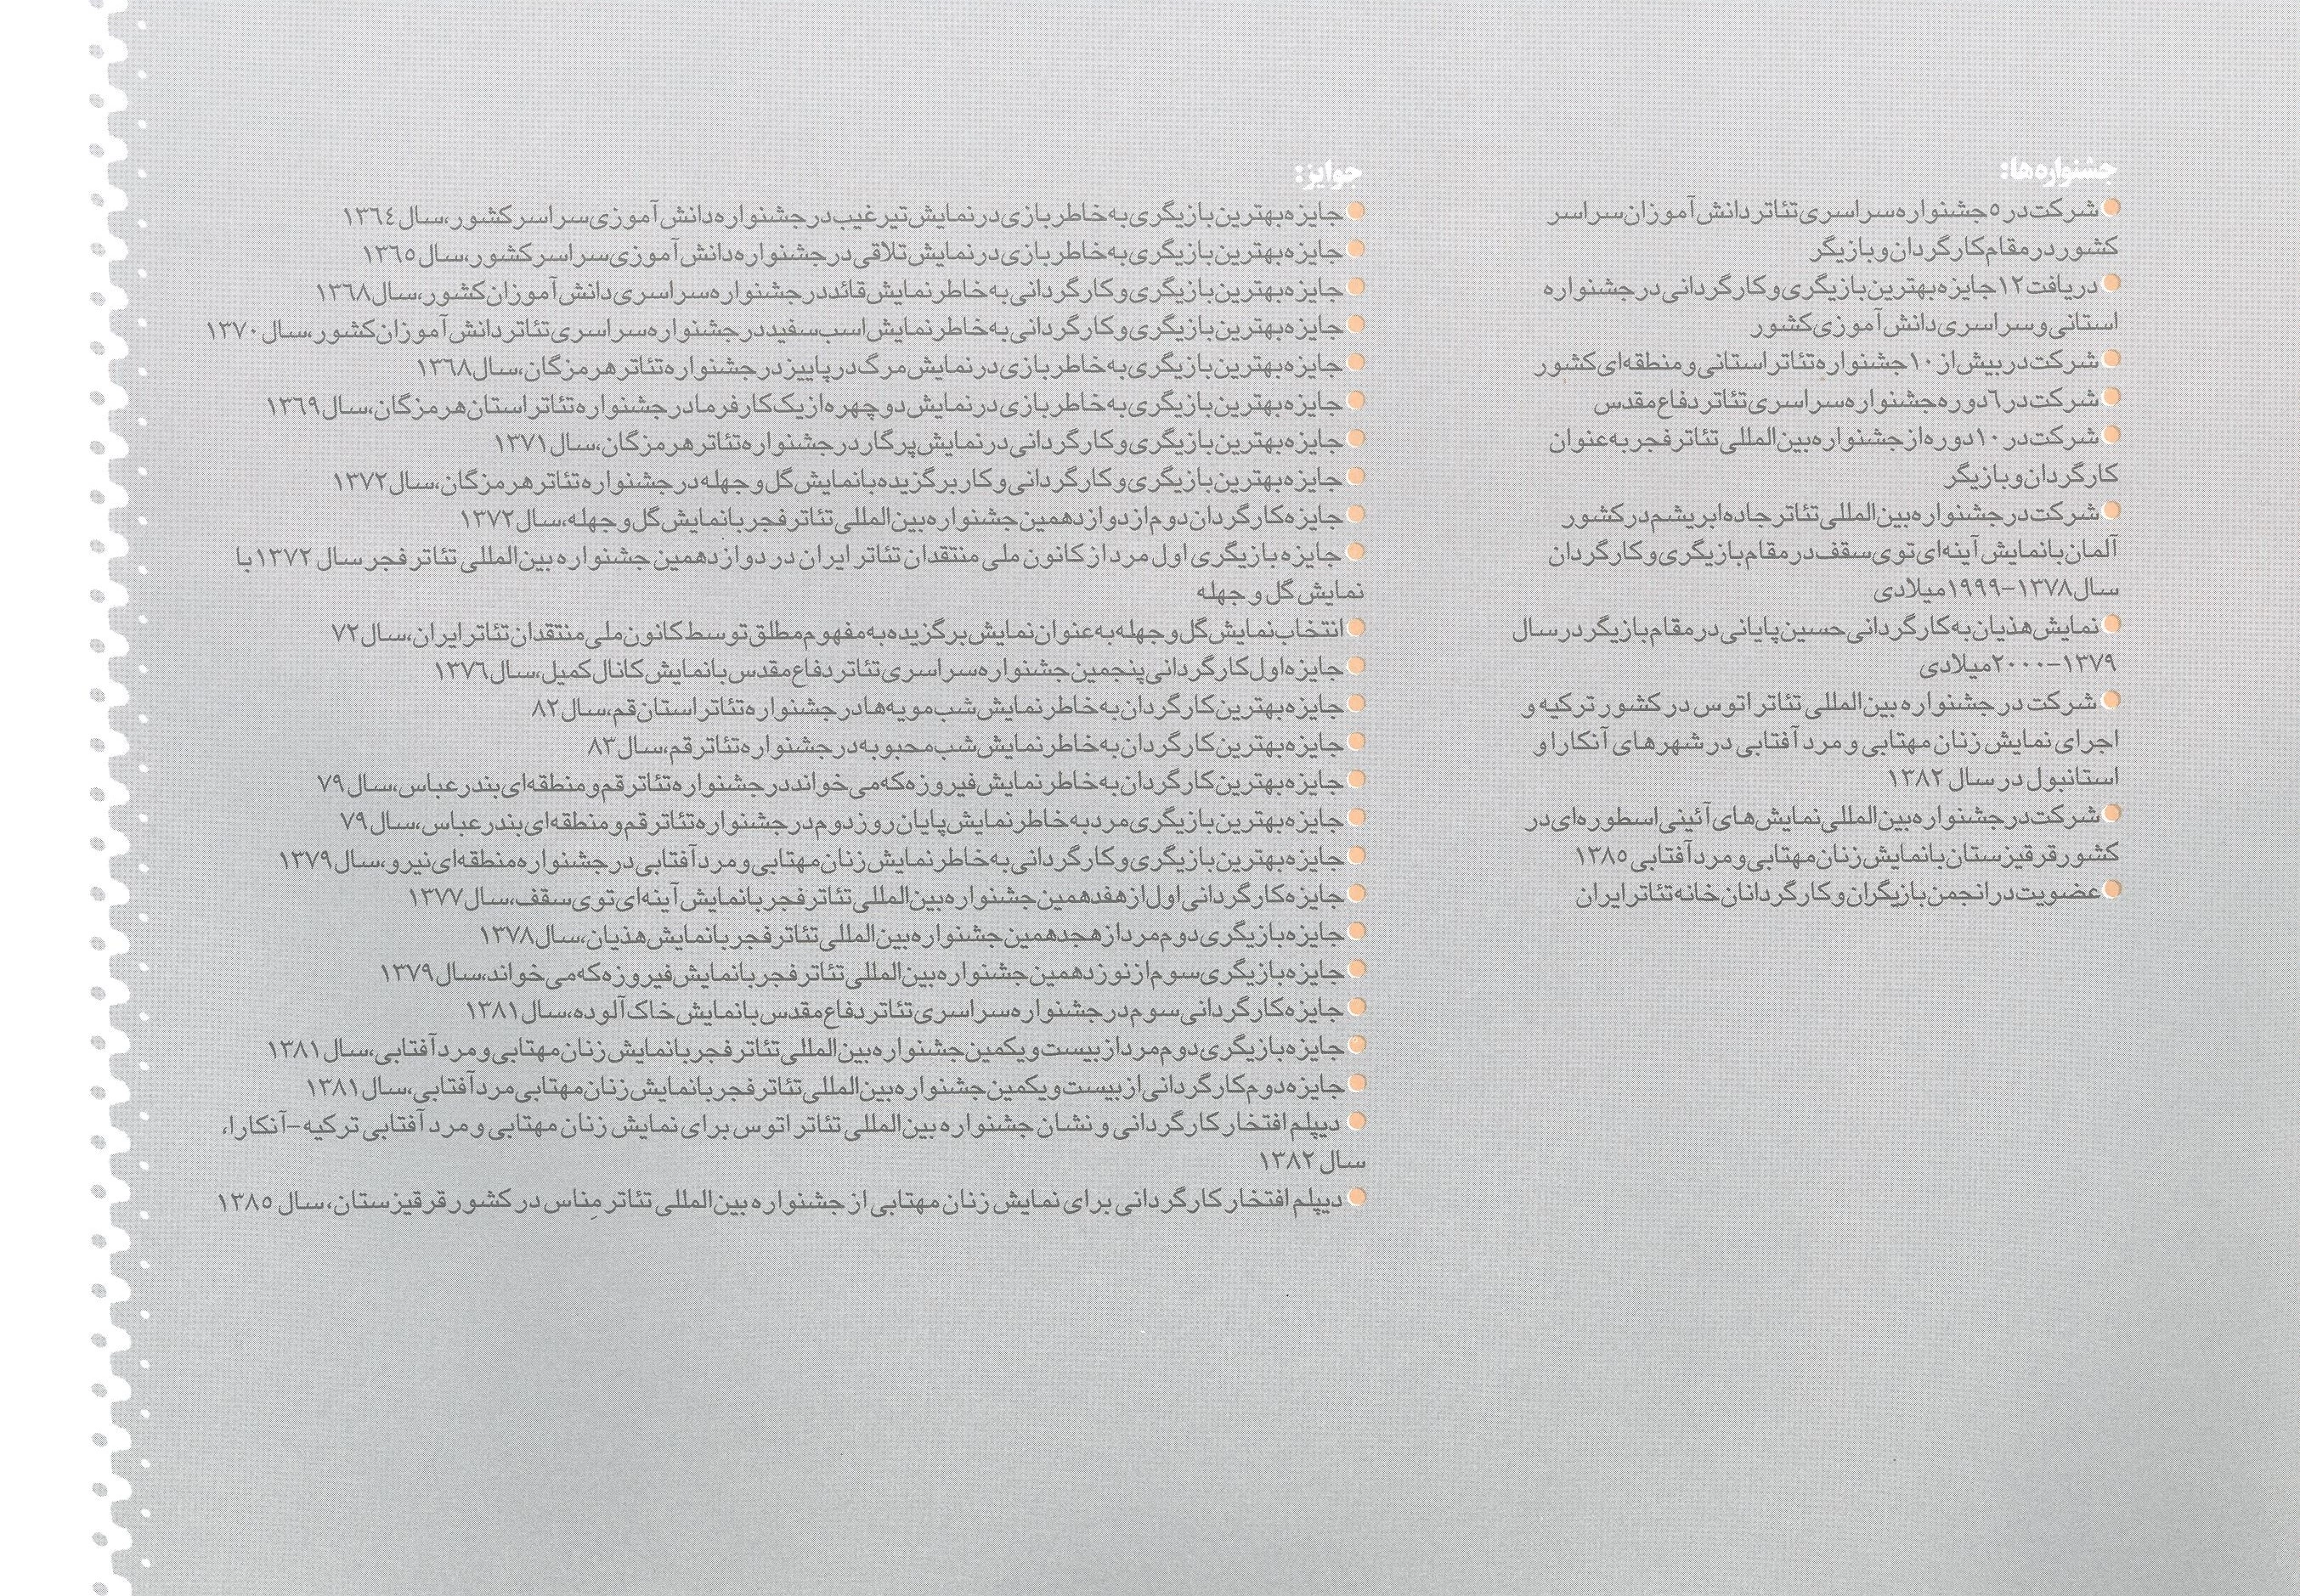 جشنواره‌ها:
شرکت در ٥ جشنواره سراسری تئاتر دانش آموزان سراسر
کشور در مقام کارگردان و بازیگر
دریافت ١٢ جایزه بهترین بازیگری و کارگردانی در جشنواره
استانی و سراسری دانش آموزی کشور
شرکت در بیش از ١٠ جشنواره تئاتر استانی و منطقه‌ای کشور
شرکت در ٦ دوره جشنواره سراسری تئاتر دفاع مقدس
شرکت در ١٠ دوره از جشنواره بین‌المللی تئاتر فجر به عنوان
کارگردان و بازیگر
شرکت در جشنواره بین‌المللی تئاتر جاده ابریشم در کشور
آلمان با نمایش آینه‌ای توی سقف در مقام بازیگری و کارگردان
سال ١٣٧٨-١٩٩٩ میلادی
نمایش هذیان به کارگردانی حسین پایانی در مقام بازیگر در سال
١٣٧٩-٢٠٠٠ میلادی
شرکت در جشنواره بین‌المللی تئاتر اتوس در کشور ترکیه و
اجرای نمایش زنان مهتابی و مرد آفتابی در شهرهای آنکارا و
استانبول در سال ١٣٨٢
شرکت در جشنواره بین‌المللی نمایش‌های آئینی اسطوره‌ای در
کشور قرقیزستان با نمایش زنان مهتابی و مرد آفتابی ١٣٨٥
عضویت در انجمن بازیگران و کارگردانان خانه تئاتر ایران
جوایز:
جایزه بهترین بازیگری به خاطر بازی در نمایش تیر غیب در جشنواره دانش آموزی سراسر کشور، سال ١٣٦٤
جایزه بهترین بازیگری به خاطر بازی در نمایش تلاقی در جشنواره دانش آموزی سراسر کشور، سال ١٣٦٥
جایزه بهترین بازیگری و کارگردانی به خاطر نمایش قائد در جشنواره سراسری دانش آموزان کشور، سال ١٣٦٨
جایزه بهترین بازیگری و کارگردانی به خاطر نمایش اسب سفید در جشنواره سراسری تئاتر دانش آموزان کشور، سال ١٣٧٠
جایزه بهترین بازیگری به خاطر بازی در نمایش مرگ در پاییز در جشنواره تئاتر هرمزگان، سال ١٣٦٨
جایزه بهترین بازیگری به خاطر بازی در نمایش دو چهره از یک کارفرما در جشنواره تئاتر استان هرمزگان، سال ١٣٦٩
جایزه بهترین بازیگری و کارگردانی در نمایش پرگار در جشنواره تئاتر هرمزگان، سال ١٣٧١
جایزه بهترین بازیگری و کارگردانی و کار برگزیده با نمایش گل و جهله در جشنواره تئاتر هرمزگان، سال ١٣٧٢
جایزه کارگردان دوم از دوازدهمین جشنواره بین‌المللی تئاتر فجر با نمایش گل و جهله، سال ١٣٧٢
جایزه بازیگری اول مرد از کانون ملی منتقدان تئاتر ایران در دوازدهمین جشنواره بین‌المللی تئاتر فجر سال ١٣٧٢ با
نمایش گل و جهله
انتخاب نمایش گل و جهله به عنوان نمایش برگزیده به مفهوم مطلق توسط کانون ملی منتقدان تئاتر ایران، سال ٧٢
جایزه اول کارگردانی پنجمین جشنواره سراسری تئاتر دفاع مقدس با نمایش کانال کمیل، سال ١٣٧٦
جایزه بهترین کارگردان به خاطر نمایش شب مویه‌ها در جشنواره تئاتر استان قم، سال ٨٢
جایزه بهترین کارگردان به خاطر نمایش شب محبوبه در جشنواره تئاتر قم، سال ٨٣
جایزه بهترین کارگردان به خاطر نمایش فیروزه که می خواند در جشنواره تئاتر قم و منطقه‌ای بندرعباس، سال ٧٩
جایزه بهترین بازیگری مرد به خاطر نمایش پایان روز دوم در جشنواره تئاتر قم و منطقه‌ای بندرعباس، سال ٧٩
جایزه بهترین بازیگری و کارگردانی به خاطر نمایش زنان مهتابی و مرد آفتابی در جشنواره منطقه‌ای نیرو، سال ١٣٧٩
جایزه کارگردانی اول از هفدهمین جشنواره بین‌المللی تئاتر فجر با نمایش آینه‌ای توی سقف، سال ١٣٧٧
جایزه بازیگری دوم مرد از هجدهمین جشنواره بین‌المللی تئاتر فجر با نمایش هذیان، سال ١٣٧٨
جایزه بازیگری سوم از نوزدهمین جشنواره بین‌المللی تئاتر فجر با نمایش فیروزه که می خواند، سال ١٣٧٩
جایزه کارگردانی سوم در جشنواره سراسری تئاتر دفاع مقدس با نمایش خاک آلوده، سال ١٣٨١
جایزه بازیگری دوم مرد از بیست و یکمین جشنواره بین‌المللی تئاتر فجر با نمایش زنان مهتابی و مرد آفتابی، سال ١٣٨١
جایزه دوم کارگردانی از بیست و یکمین جشنواره بین‌المللی تئاتر فجر با نمایش زنان مهتابی مرد آفتابی، سال ١٣٨١
دیپلم افتخار کارگردانی و نشان جشنواره بین‌المللی تئاتر اتوس برای نمایش زنان مهتابی و مرد آفتابی ترکیه-آنکارا،
سال ١٣٨٢
دیپلم افتخار کارگردانی برای نمایش زنان مهتابی از جشنواره بین‌المللی تئاتر مِناس در کشور قرقیزستان، سال ١٣٨٥